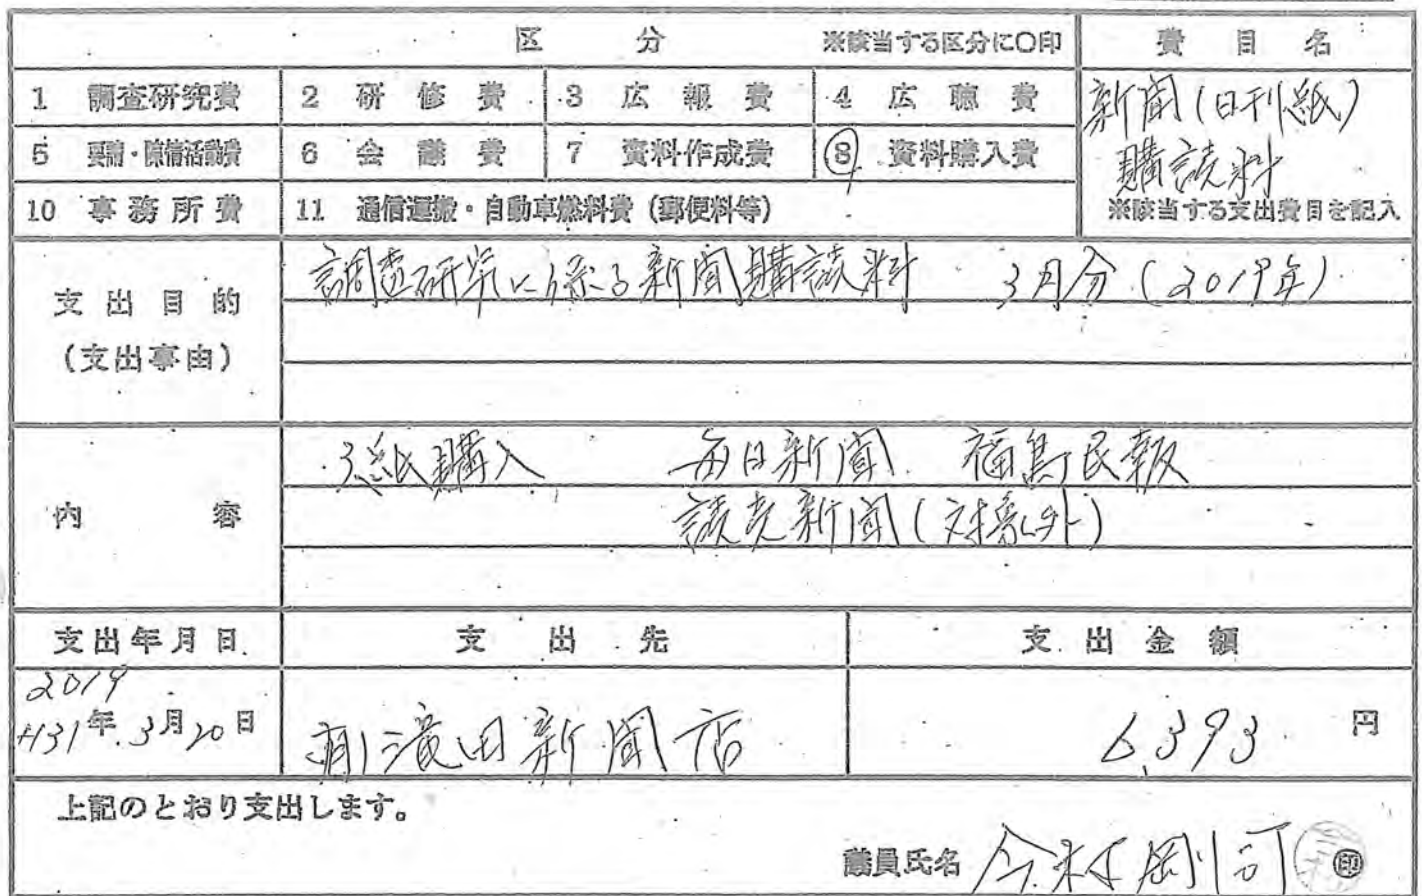 区 分 ※該当する区分に○印 費目名
1 調査研究費 2 研修費 3 広報費 4 広聴費
新聞(日刊紙)
5 要請・陳情活動費 6 会議費 7 資料作成費 ⑧ 資料購入費
購読料
10 事務所費 11 通信運搬・自動車燃料費(郵便料等) ※該当する支出費目を記入
支出目的
(支出事由)
調査研究に係る新聞購読料 3月分(2019年)
内容
3紙購入 毎日新聞. 福島民報
読売新聞(対象外)
支出年月日 支出先 支出金額
2019
H31年3月20日 (有)滝田新聞店 6,393円
上記のとおり支出します。
議員氏名 今村剛司 ㊞